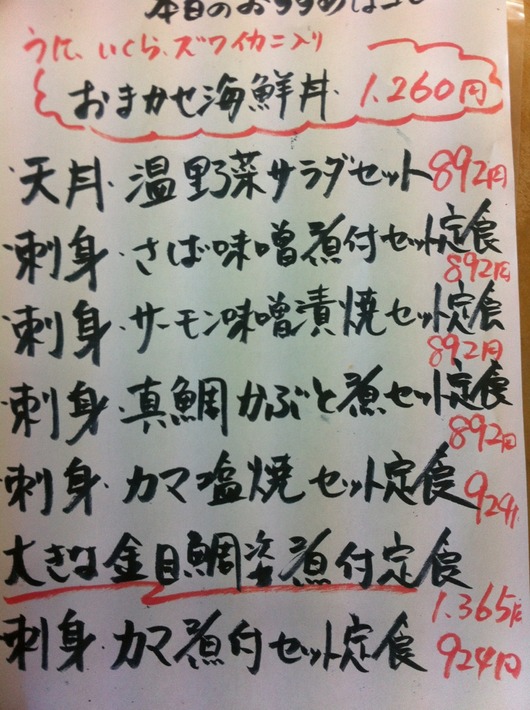 本日のおすすめは
うに、いくら、ズワイカニ入り
おまかせ海鮮丼 1.260円
・天丼・温野菜サラダセット 892円
・刺身・さば味噌煮付セット定食
892円
・刺身・サーモン味噌漬焼セット定食
892円
・刺身・真鯛かぶと煮セット定食
892円
・刺身・カマ塩焼セット定食
924円
大きな金目鯛姿煮付定食
1.365円
・刺身・カマ煮付セット定食 924円